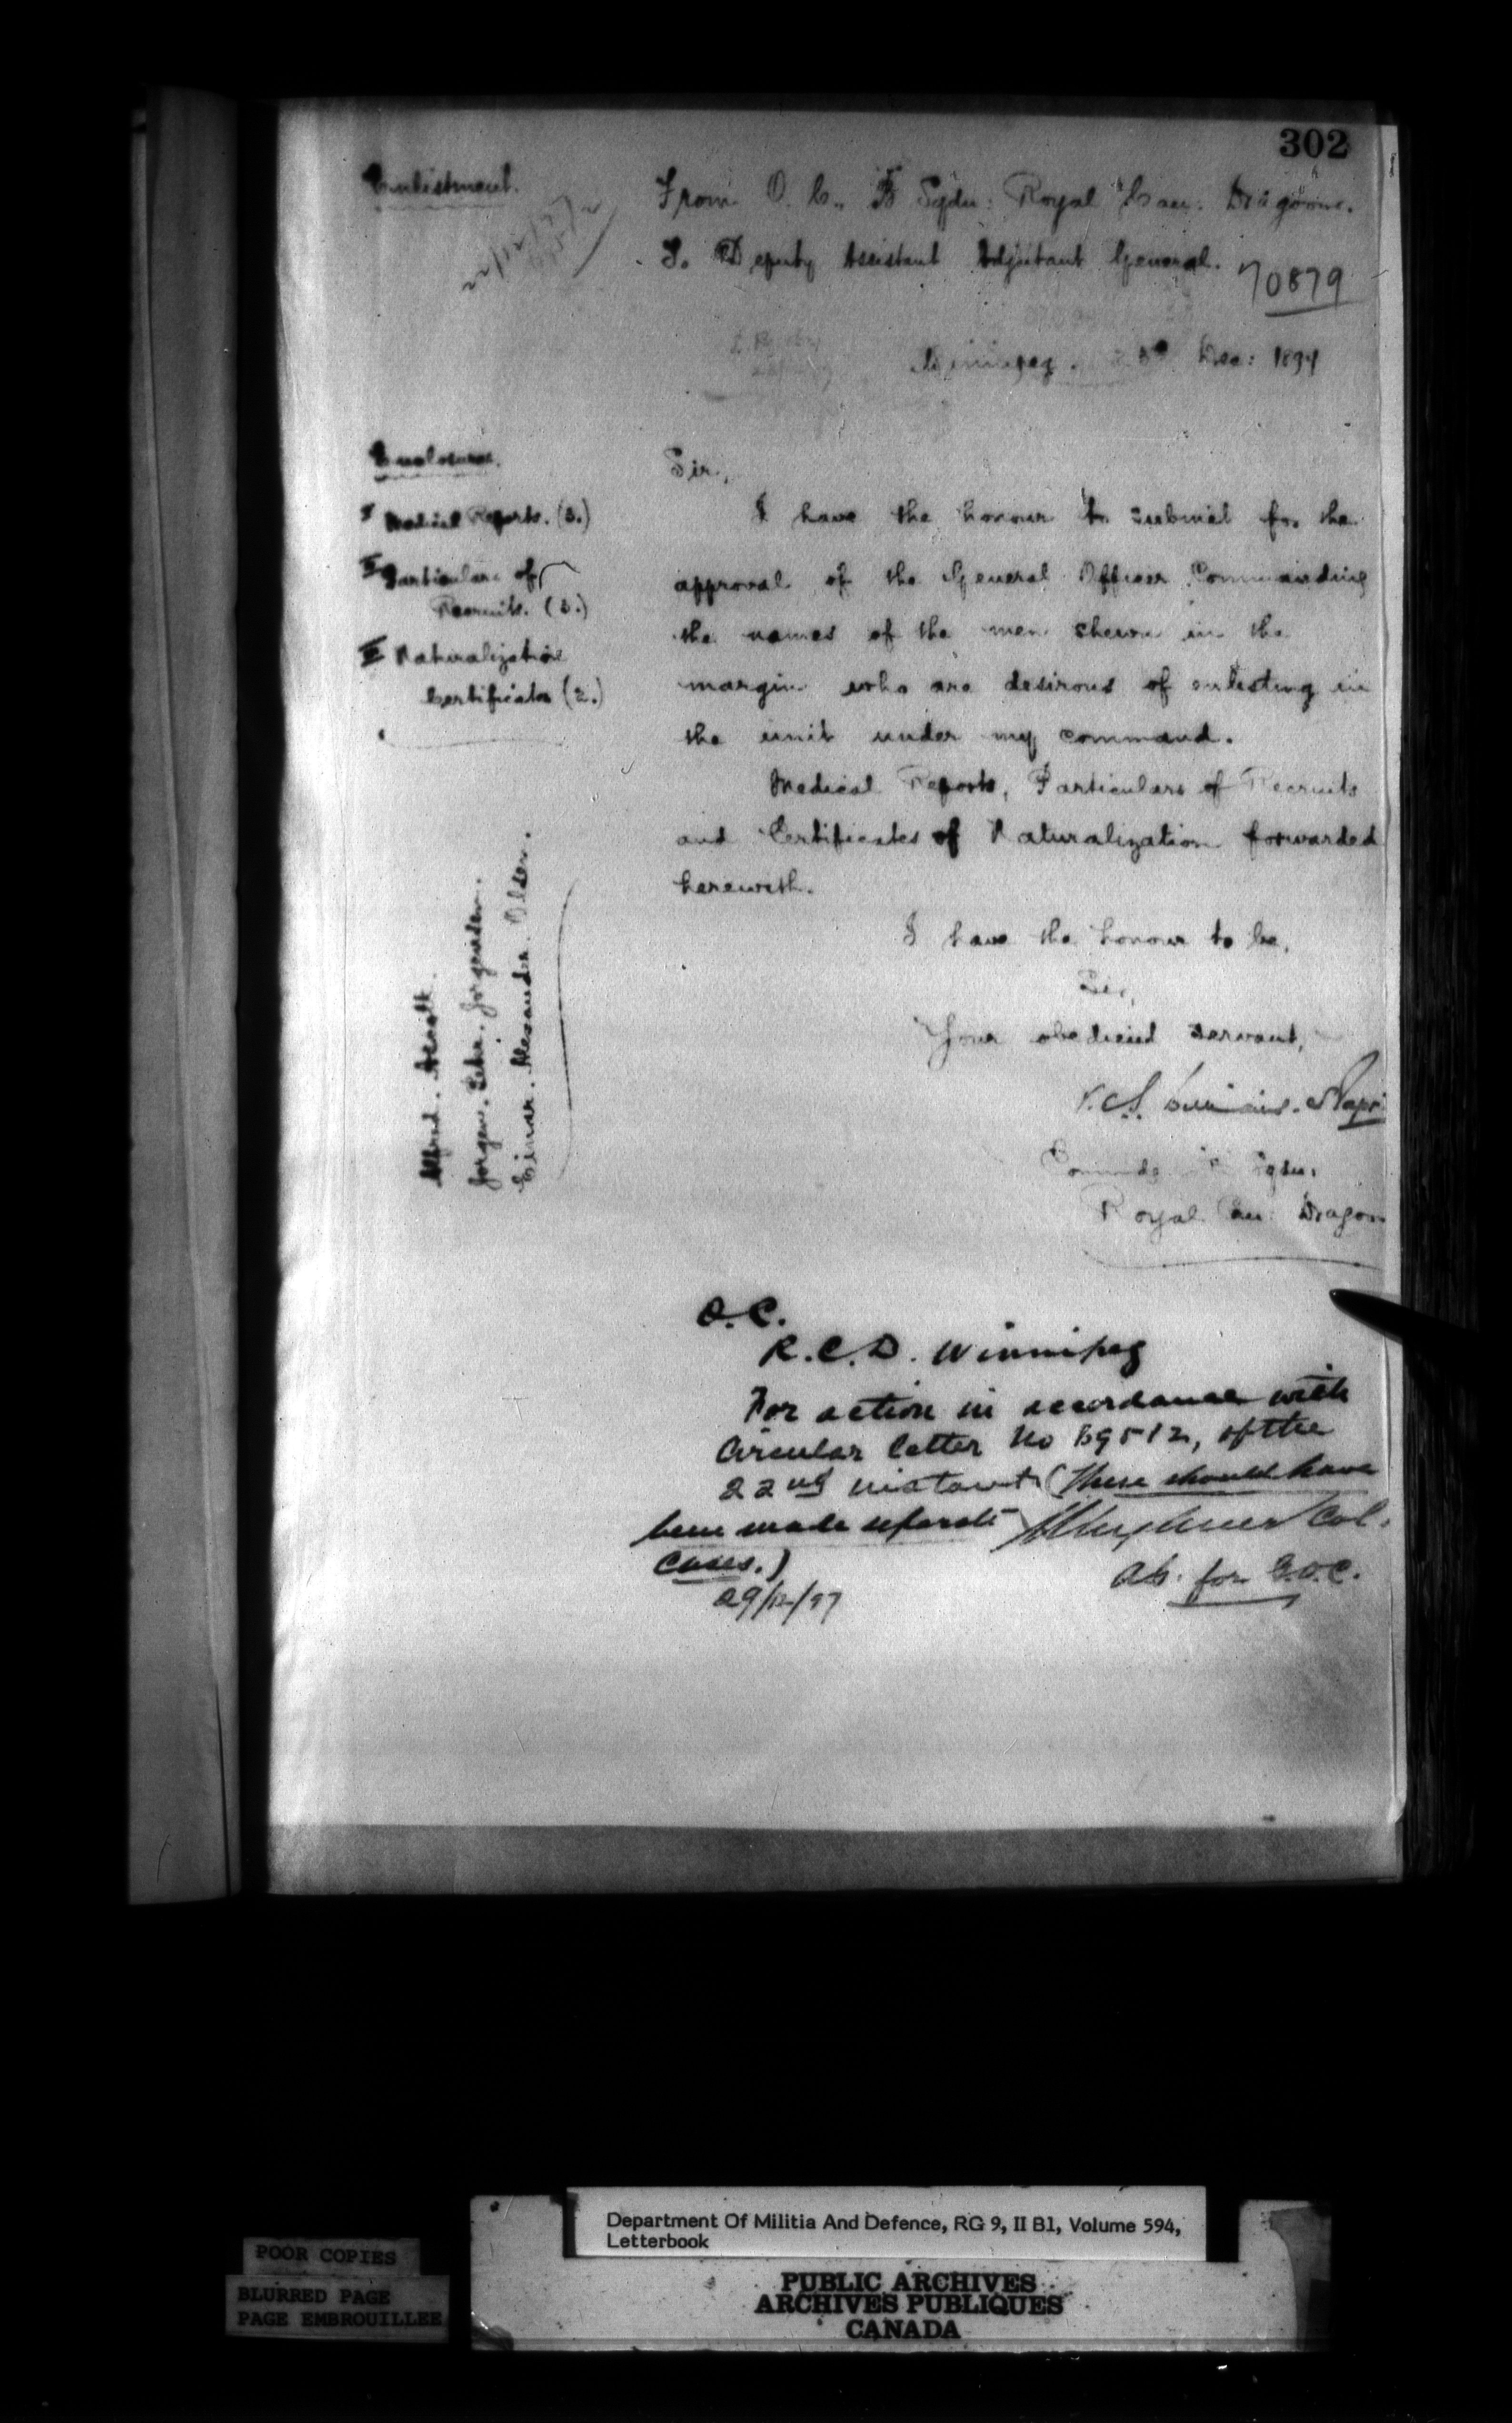 302
Enlistment.
From O. C., "B" Sqdn: Royal Can: Dragoons.
To Deputy Assistant Adjutant General.
70879
Winnipeg. Dec: 1897
Enclosures.
I Medical Reports. (3.)
II Particulars of
Recruits. (3.)
III Naturalization
Certificates (2.)
Sir,
I have the honour to submit for the
approval of the General Officer Commanding
the names of the men shewn in the
margin who are desirous of enlisting in
the unit under my command.
Medical Reports, Particulars of Recruits
and Certificates of Naturalization forwarded
herewith.
Alfred.
Jorgen. Jorgensen.
Einar. Alexander. Olsen.
I have the honour to be,
Sir,
Your obedient servant,
Commdg Sqdn:
Royal Can: Dragoon
O.C.
R.C.D. Winnipeg
For action in accordance with
Circular letter No 69512, of the
22nd instant (These should have
been made separate Col.
cases.)
AG. for G.O.C.
29/12/97
Department Of Militia And Defence, RG 9, II B1, Volume 594,
Letterbook
POOR COPIES
BLURRED PAGE
PAGE EMBROUILLEE
PUBLIC ARCHIVES
ARCHIVES PUBLIQUES
CANADA